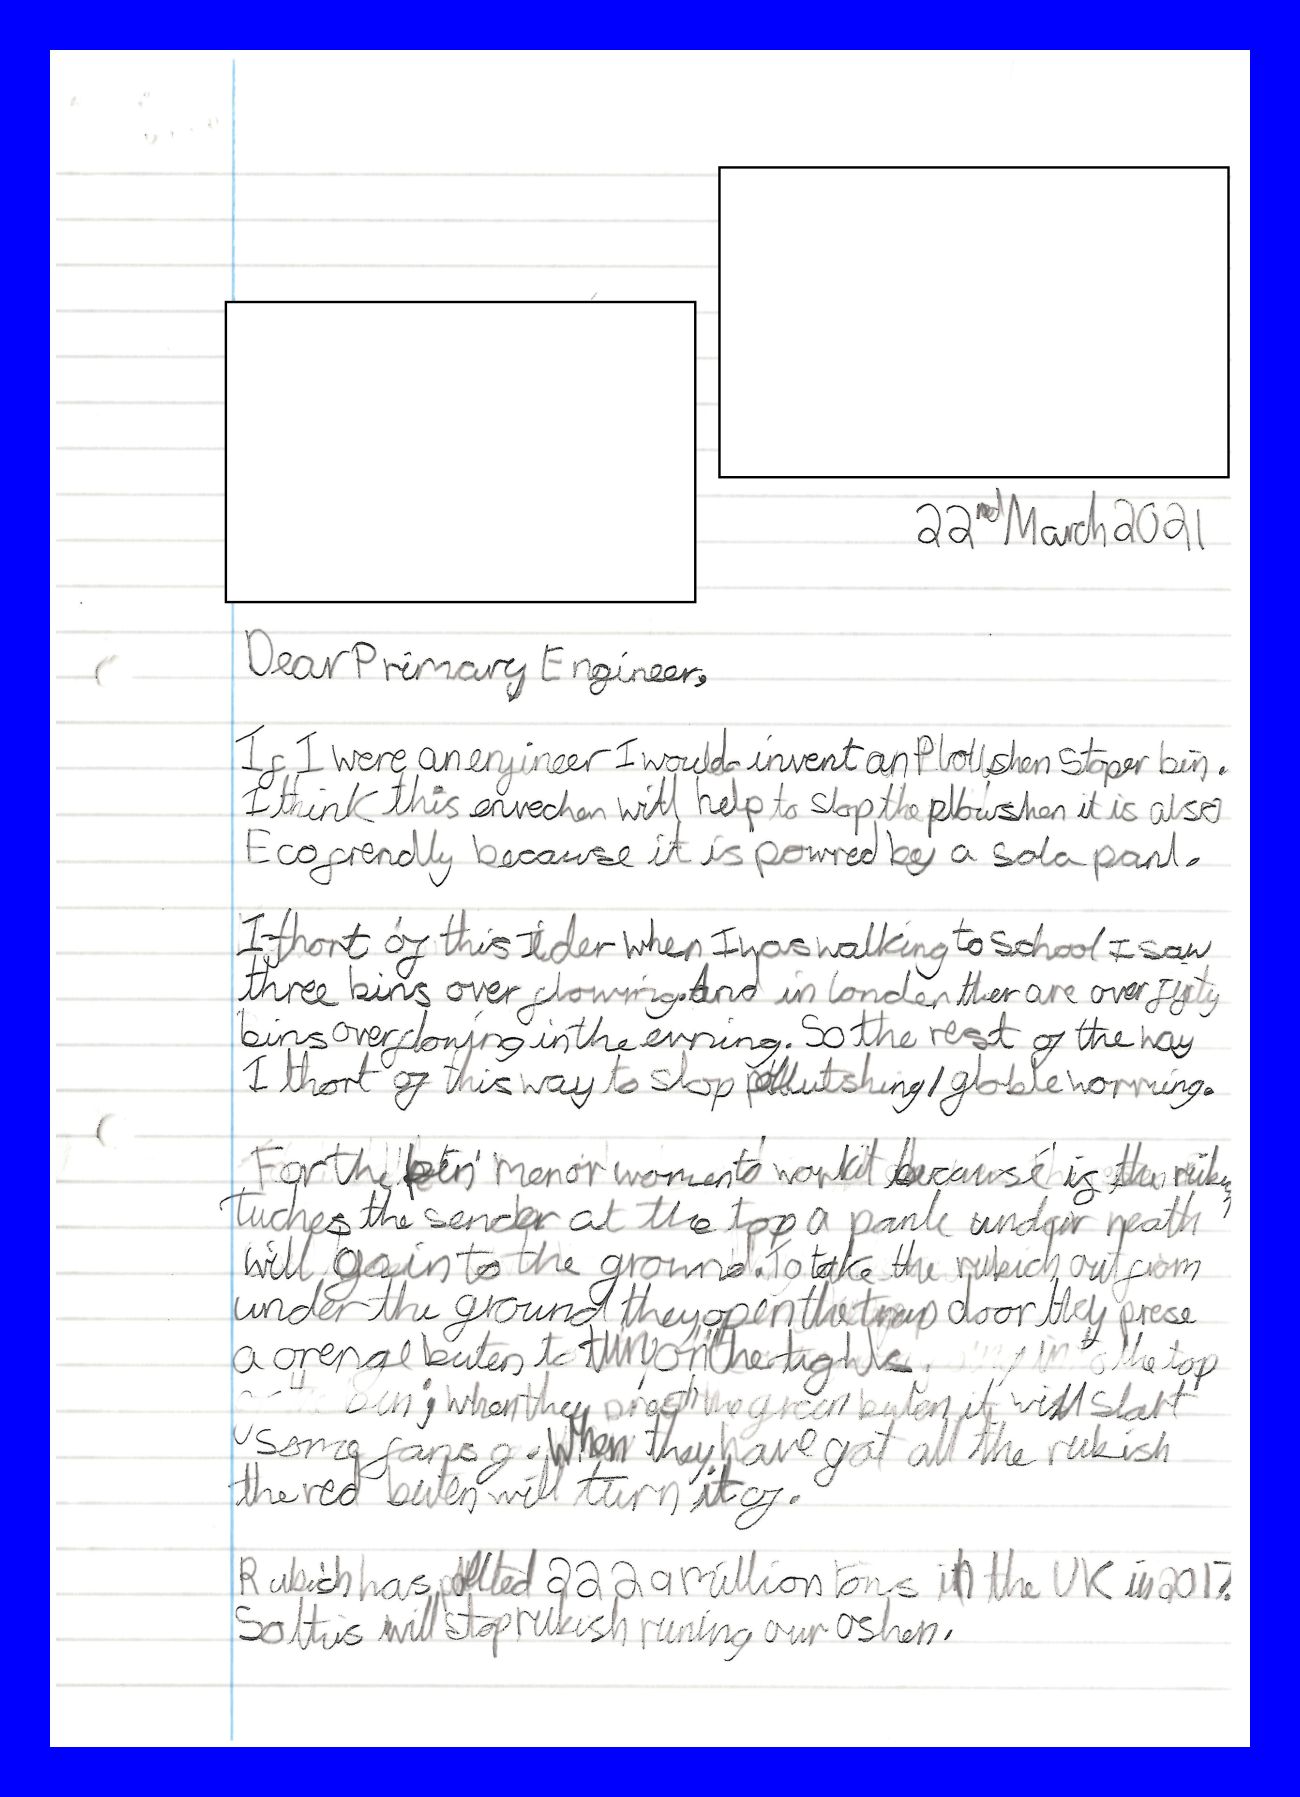 22nd March 2021
Dear Primary Engineer,
If I were an engineer I would invent an Plollshen Stoper bin.
I think this envechen will help to stop the plowshen it is also
Eco frendly because it is powred by a sola panl.
I thort of this Iider when I was walking to School I saw
three bins over flowing. And in londen ther are over fifty
bins overflowing in the evning. So the rest of the way
I thort of this way to stop pollutshing / globle worming.
For the bin men or women to work it because if the
Tuches the sender at the top a panle undur neath
will go in to the ground. To take the rubich out from
under the ground they open the trap door they prese
a orenge buten to turn on the lights. the top
bin; when they prest the green buten it will start
some fans g. When they have got all the rubish
the red buten will turn it of.
Rubich has pollted 222.9 million tons in the UK in 2017.
So this will stop rubish runing our oshen.